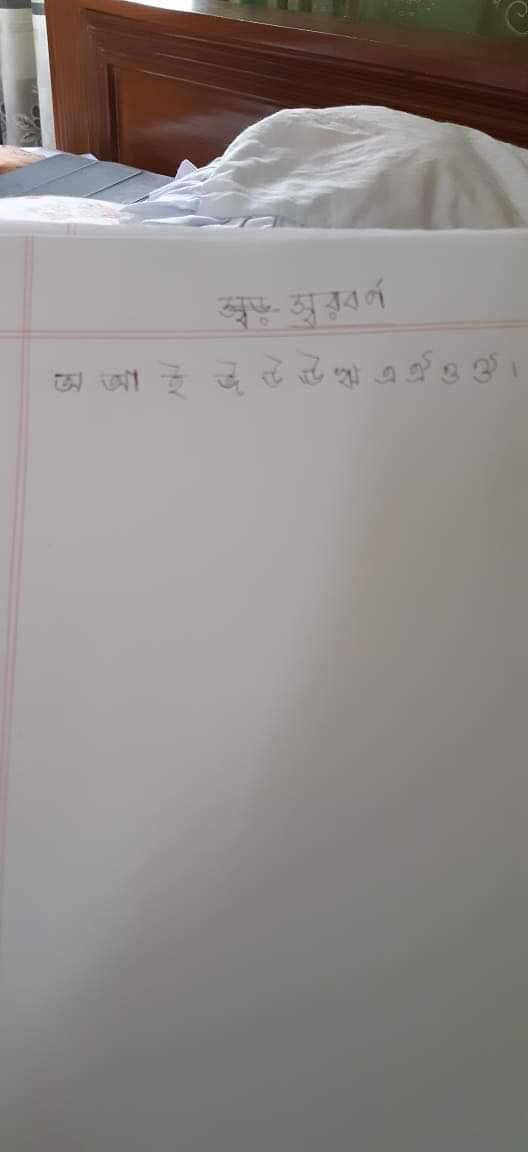 স্বরবর্ণ
অ আ ই ঈ উ ঊ ঋ এ ঐ ও ঔ ।